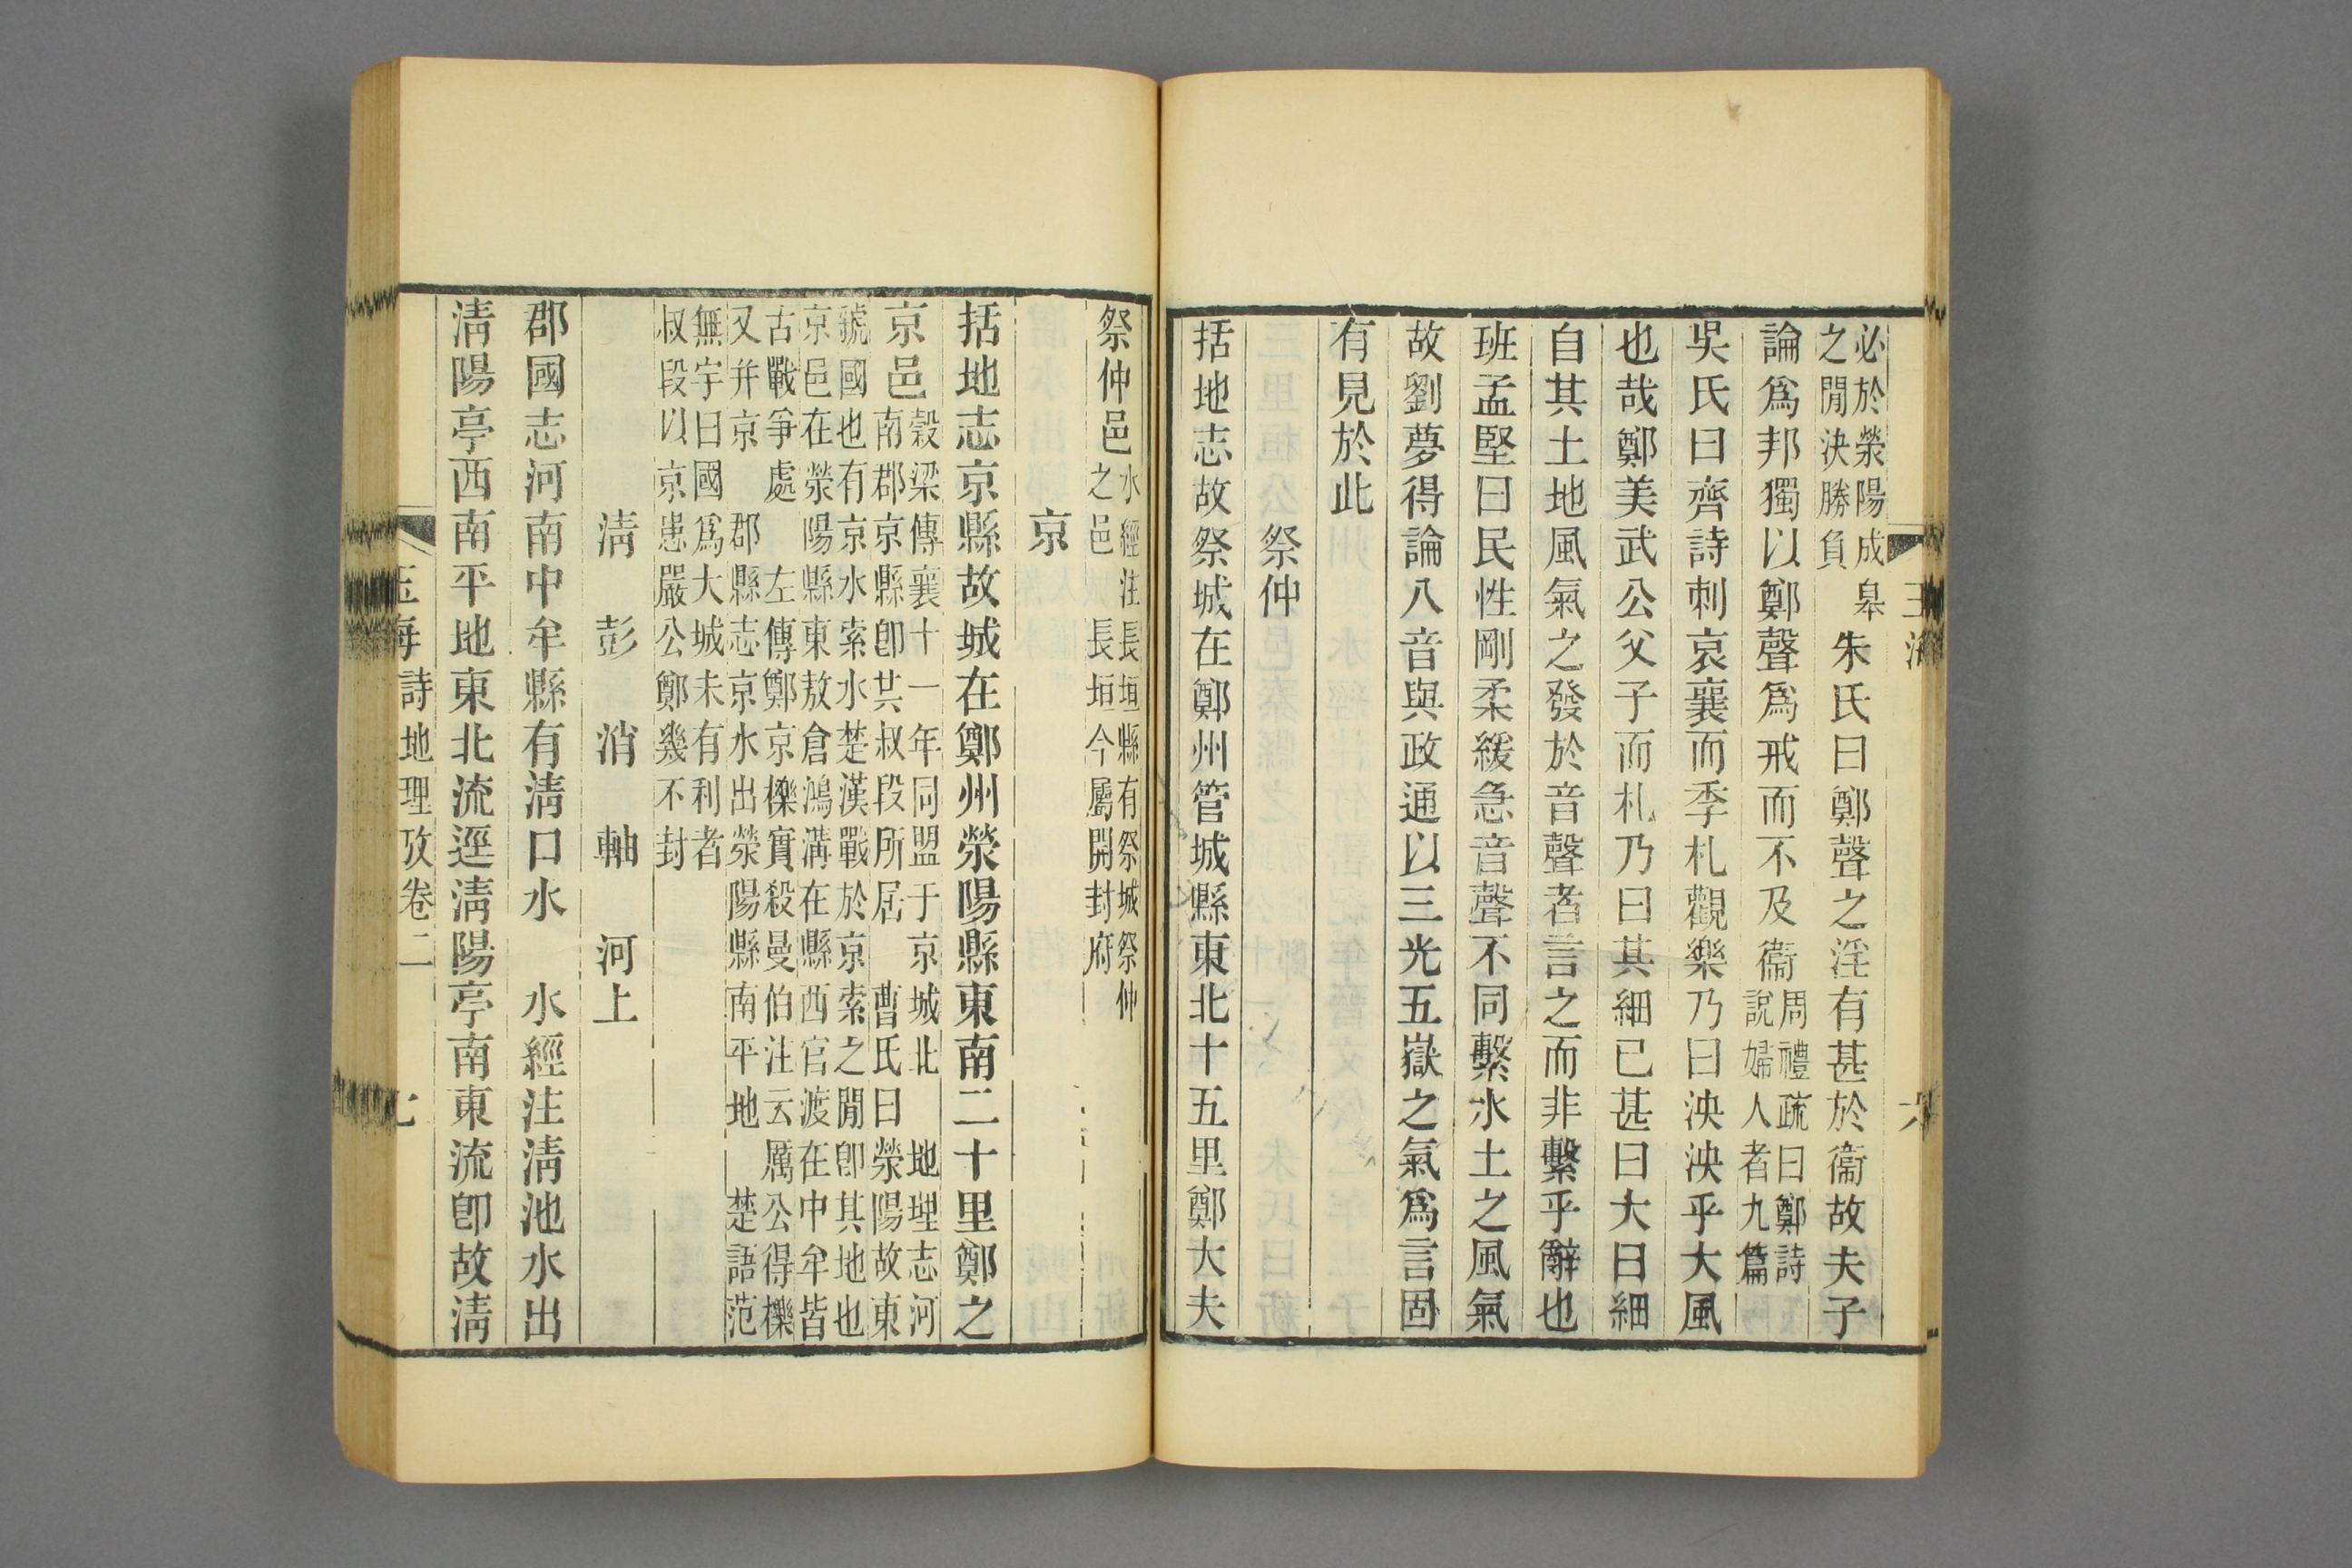 玉海
六
必於滎陽成臯
之閒決勝負
朱氏曰鄭聲之淫有甚於衞故夫子
論爲邦獨以鄭聲爲戒而不及衞
周禮疏曰鄭詩
說婦人者九篇
吳氏曰齊詩刺哀襄而季札觀樂乃曰泱泱乎大風
也哉鄭美武公父子而札乃曰其細已甚曰大曰細
自其土地風氣之發於音聲者言之而非繫乎辭也
班孟堅曰民性剛柔緩急音聲不同繫水土之風氣
故劉夢得論八音與政通以三光五嶽之氣爲言固
有見於此
祭仲
括地志故祭城在鄭州管城縣東北十五里鄭大夫
祭仲邑
水經注長垣縣有祭城祭仲
之邑長垣今屬開封府
京
括地志京縣故城在鄭州滎陽縣東南二十里鄭之
京邑
穀梁傳襄十一年同盟于京城北 地理志河
南郡京縣卽共叔段所居 曹氏曰滎陽故東
虢國也有京水索水楚漢戰於京索之閒卽其地也
京邑在滎陽縣東敖倉鴻溝在縣西官渡在中牟皆
古戰爭處 左傳鄭京櫟實殺曼伯注云厲公得櫟
又幷京 郡縣志京水出滎陽縣南平地 楚語范
無宇曰國爲大城未有利者
叔段以京患嚴公鄭幾不封
淸 彭 消 軸 河上
郡國志河南中牟縣有淸口水 水經注淸池水出
淸陽亭西南平地東北流逕淸陽亭南東流卽故淸
玉海詩地理攷卷二
七